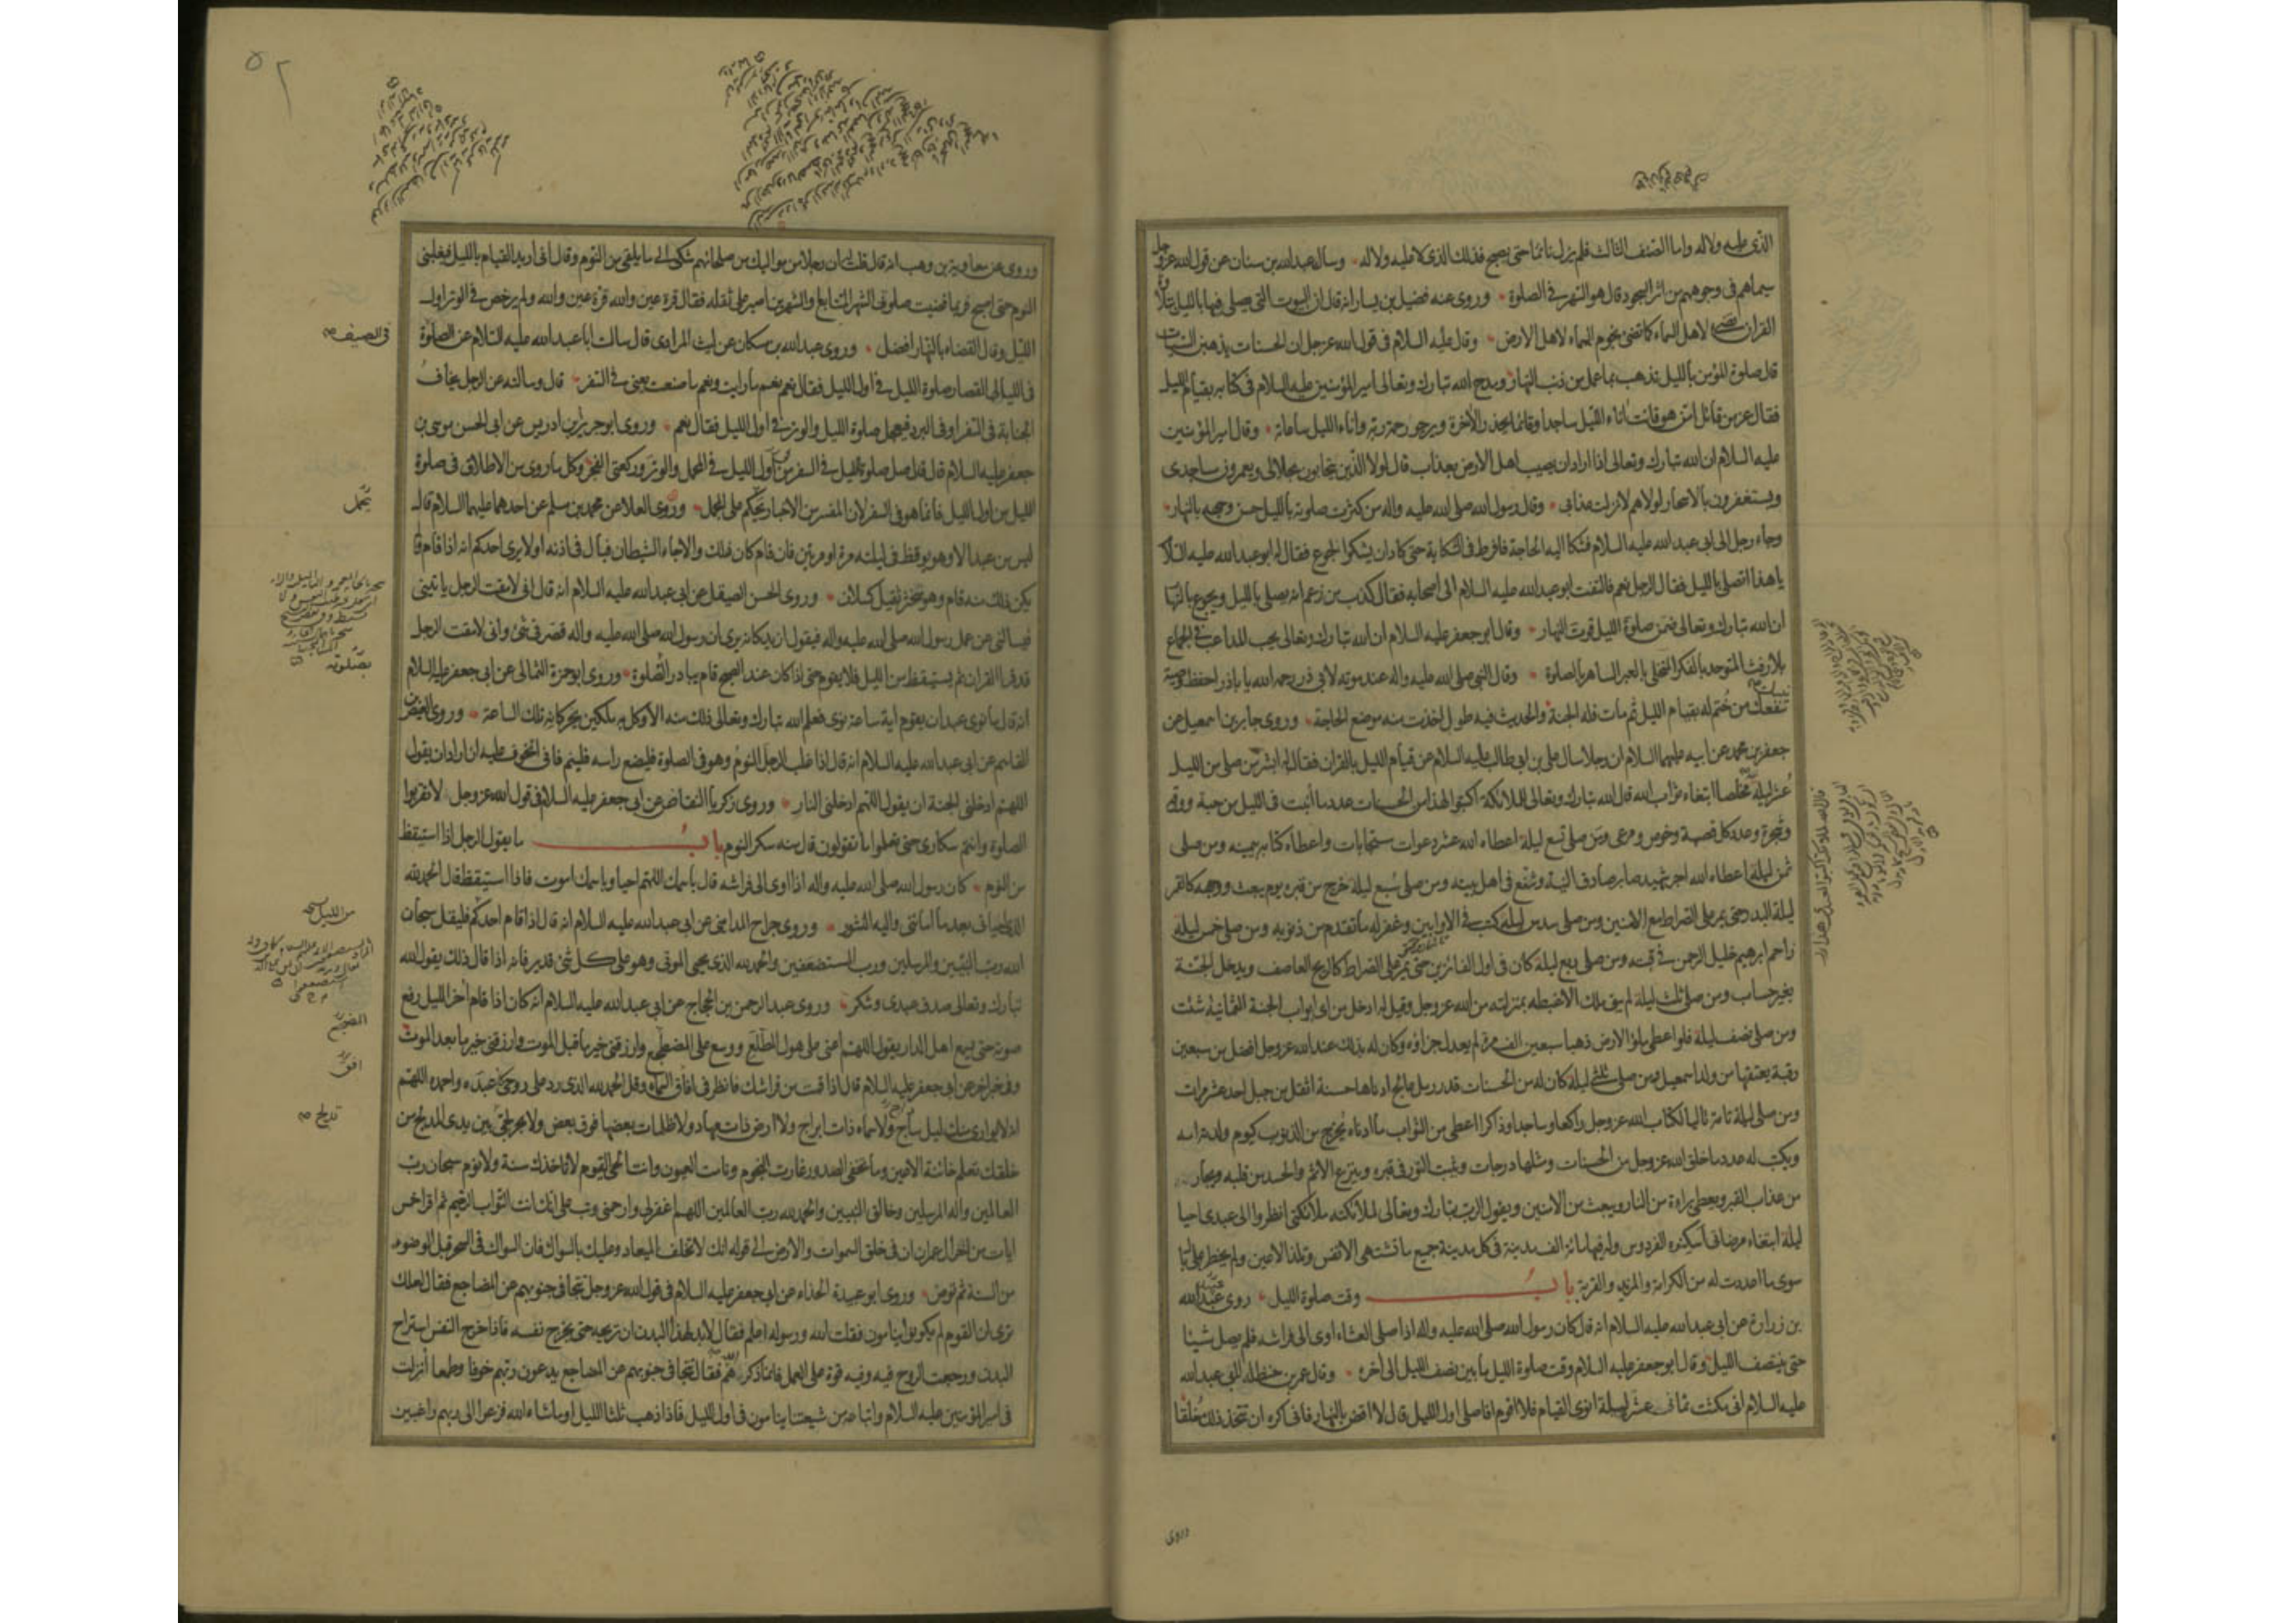 الذى عليه ولا له واما الصنف الثالث فلم يزل نائما حتى يصبح فذلك الذى لا عليه ولا له وسأل عبدالله بن سنان عن قول الله عزوجل
سيماهم فى وجوههم من اثر السجود قال هو السهر فى الصلوة وروى عنه فضيل بن يسار انه قال ان البيوت التى يصلى فيها بالليل بتلاوة
القران تضئ لاهل السماء كما تضئ نجوم السماء لاهل الارض وقال عليه السلام فى قول الله عزوجل ان الحسنات يذهبن السيئات
قال صلوة المؤمن بالليل تذهب بما عمل من ذنب النهار ومدح الله تبارك وتعالى امير المؤمنين عليه السلام فى كتابه بقيام الليل
فقال عز من قائل امن هو قانت اناء الليل ساجدا وقائما يحذر الاخرة ويرجو رحمة ربه واناء الليل ساعاته وقال امير المؤمنين
عليه السلام ان الله تبارك وتعالى اذا اراد ان يصيب اهل الارض بعذاب قال لولا الذين يتحابون بجلالى ويعمرون مساجدى
ويستغفرون بالاسحار لولاهم لانزلت عذابى وقال رسول الله صلى الله عليه واله من كثرت صلوته بالليل حسن وجهه بالنهار
وجاء رجل الى ابى عبدالله عليه السلام فشكا اليه الحاجة فافرط فى الشكاية حتى كاد ان يشكوا الجوع فقال له ابو عبدالله عليه السلام
يا هذا اتصلى بالليل فقال الرجل نعم فالتفت ابو عبدالله عليه السلام الى اصحابه فقال كذب من زعم انه يصلى بالليل ويجوع بالنهار
ان الله تبارك وتعالى ضمن صلوة الليل قوت النهار وقال ابو جعفر عليه السلام ان الله تبارك وتعالى يحب المداعب فى الجماع
بلا رفث المتوحد بالفكر المتخلى بالعبر الساهر بالصلوة وقال النبى صلى الله عليه واله عند موته لابى ذر رحمه الله يا باذر احفظ وصية
نبيك تنفعك من ختم له بقيام الليل ثم مات فله الجنة والحديث فيه طويل اخذت منه موضع الحاجة وروى جابر بن اسمعيل عن
جعفر بن محمد عن ابيه عليهما السلام ان رجلا سال على بن ابى طالب عليه السلام عن قيام الليل بالقران فقال له ابشر من صلى من الليل
عشر ليلة مخلصا ابتغاء ثواب الله قال الله تبارك وتعالى لملائكته اكتبوا لعبدى هذا من الحسنات عدد ما انبت فى الليل من حبة وورقة
وشجرة وعدد كل قصبة وخوص ومرعى ومن صلى تسع ليلة اعطاه الله عشر دعوات مستجابات واعطاه كتابه بيمينه ومن صلى
ثمن ليلة اعطاه الله اجر شهيد صابر صادق النية وشفع فى اهل بيته ومن صلى سبع ليلة خرج من قبره يوم يبعث ووجهه كالقمر
ليلة البدر حتى يمر على الصراط مع الامنين ومن صلى سدس ليلة كتب فى الاوابين وغفر له ما تقدم من ذنوبه ومن صلى خمس ليلة
زاحم ابرهيم خليل الرحمن فى قبته ومن صلى ربع ليلة كان فى اول الفائزين حتى يمر على الصراط كالريح العاصف ويدخل الجنة
بغير حساب ومن صلى ثلث ليلة لم يبق ملك الا غبطه بمنزلته من الله عزوجل وقيل له ادخل من اى ابواب الجنة الثمانية شئت
ومن صلى نصف ليلة فلو اعطى ملؤ الارض ذهبا سبعين الف مرة لم يعدل جزاؤه وكان له بذلك عند الله عزوجل افضل من سبعين
رقبة يعتقها من ولد اسمعيل ومن صلى ثلثى ليلة كان له من الحسنات قدر رمل عالج ادناها حسنة اثقل من جبل احد عشر مرات
ومن صلى ليلة تامة تاليا لكتاب الله عزوجل راكعا وساجدا وذاكرا اعطى من الثواب ما ادناه يخرج من الذنوب كيوم ولدته امه
ويكتب له عدد ما خلق الله عزوجل من الحسنات ومثلها درجات ويثبت النور فى قبره وينزع الاثم والحسد من قلبه ويجار
من عذاب القبر ويعطى براءة من النار ويبعث من الامنين ويقول الرب تبارك وتعالى لملائكته ملائكتى انظروا الى عبدى احيا
ليلة ابتغاء مرضاتى اسكنوه الفردوس وله فيها مائة الف مدينة فى كل مدينة جميع ما تشتهى الانفس وتلذ الاعين ولم يخطر على بال
سوى ما اعددت له من الكرامة والمزيد والقربة باب وقت صلوة الليل روى عبدالله
بن زرارة عن ابى عبدالله عليه السلام انه قال كان رسول الله صلى الله عليه واله اذا صلى العشاء اوى الى فراشه فلم يصل شيئا
حتى ينتصف الليل وقال ابو جعفر عليه السلام وقت صلوة الليل ما بين نصف الليل الى اخره وقال عمر بن حنظله لابى عبدالله
عليه السلام انى مكثت ثمانى عشر ليلة انوى القيام فلا اقوم افاصلى اول الليل قال لا اقض بالنهار فانى اكره ان تتخذ ذلك خلقا
وروى
وروى عن معاوية بن وهب انه قال قلت له ان رجلا من مواليك من صلحائهم شكى الى ما يلقى من النوم وقال انى اريد القيام بالليل فيغلبنى
النوم حتى اصبح فربما قضيت صلوتى الشهر المتتابع والشهرين اصبر على ثقله فقال قرة عين والله قرة عين والله ولم يرخص فى الوتر اول
الليل وقال القضاء بالنهار افضل وروى عبدالله بن مسكان عن ليث المرادى قال سالت ابا عبدالله عليه السلام عن الصلوة
فى الصيف
فى الليالى القصار صلوة الليل فى اول الليل فقال نعم نعم ما رايت ونعم ما صنعت يعنى فى السفر قال وسالته عن الرجل يخاف
الجنابة فى السفر او فى البرد فيعجل صلوة الليل والوتر فى اول الليل فقال نعم وروى ابو جرير بن ادريس عن ابى الحسن موسى بن
جعفر عليه السلام قال قال صل صلوة الليل فى السفر من اول الليل فى المحمل والوتر وركعتى الفجر وكل ما روى من الاطلاق فى صلوة
الليل من اول الليل فانما هو فى السفر لان المفسر من الاخبار يحكم على المجمل وروى العلا عن محمد بن مسلم عن احدهما عليهما السلام قال
ليس من عبد الا وهو يوقظ فى ليلته مرة او مرتين فان قام كان ذلك والا جاء الشيطان فبال فى اذنه اولا يرى احدكم انه اذا قام ولم
يكن ذلك منه قام وهو متخثر ثقيل كسلان وروى الحسن الصيقل عن ابى عبدالله عليه السلام انه قال انى لامقت الرجل ياتينى
فيسالنى عن عمل رسول الله صلى الله عليه واله فيقول ازيد كانه يرى ان رسول الله صلى الله عليه واله قصر فى شئ وانى لامقت الرجل
قد قرا القران ثم يستيقظ من الليل فلا يقوم حتى اذا كان عند الصبح قام يبادر الصلوة وروى ابو حمزة الثمالى عن ابى جعفر عليه السلام
بصلوته
انه قال ما نوى عبد ان يقوم اية ساعة نوى فعلم الله تبارك وتعالى ذلك منه الا وكل به ملكين يحركانه تلك الساعة وروى العيص بن
القاسم عن ابى عبدالله عليه السلام انه قال اذا غلب الرجل النوم وهو فى الصلوة فليضع راسه فلينم فانى اتخوف عليه ان اراد ان يقول
اللهم ادخلنى الجنة ان يقول اللهم ادخلنى النار وروى زكريا النقاض عن ابى جعفر عليه السلام فى قول الله عزوجل لا تقربوا
الصلوة وانتم سكارى حتى تعلموا ما تقولون قال منه سكر النوم باب ما يقول الرجل اذا استيقظ
من النوم كان رسول الله صلى الله عليه واله اذا اوى الى فراشه قال باسمك اللهم احيا وباسمك اموت فاذا استيقظ قال الحمد لله
من الليل
الذى احيانى بعد ما اماتنى واليه النشور وروى جراح المداينى عن ابى عبدالله عليه السلام انه قال اذا قام احدكم فليقل سبحان
الله رب النبيين والمرسلين ورب المستضعفين والحمد لله الذى يحيى الموتى وهو على كل شئ قدير فانه اذا قال ذلك يقول الله
تبارك وتعالى صدق عبدى وشكر وروى عبد الرحمن بن الحجاج عن ابى عبدالله عليه السلام انه كان اذا قام اخر الليل رفع
صوته حتى يسمع اهل الدار يقول اللهم اعنى على هول المطلع ووسع على المضطجع وارزقنى خير ما قبل الموت وارزقنى خير ما بعد الموت
وفى خبر اخر عن ابى جعفر عليه السلام قال اذا قمت من فراشك فانظر فى افاق السماء وقل الحمد لله الذى رد على روحى اعبده واحمده اللهم
انه لا يوارى منك ليل ساج ولا سماء ذات ابراج ولا ارض ذات مهاد ولا ظلمات بعضها فوق بعض ولا بحر لجى بين يدى المدلج من
خلقك تعلم خائنة الاعين وما تخفى الصدور غارت النجوم ونامت العيون وانت الحى القيوم لا تاخذك سنة ولا نوم سبحان رب
العالمين واله المرسلين وخالق النبيين والحمد لله رب العالمين اللهم اغفر لى وارحمنى وتب على انك انت التواب الرحيم ثم اقرا خمس
ايات من اخر ال عمران ان فى خلق السموات والارض الى قوله انك لا تخلف الميعاد وعليك بالسواك فان السواك فى السحر قبل الوضوء
من السنة ثم توض وروى ابو عبيدة الحذاء عن ابى جعفر عليه السلام فى قول الله عزوجل تتجافى جنوبهم عن المضاجع فقال لعلك
ترى ان القوم لم يكونوا ينامون فقلت الله ورسوله اعلم فقال لابد لهذا البدن ان تريحه حتى يخرج نفسه فاذا خرج النفس استراح
البدن ورجعت الروح فيه وفيه قوة على العمل فانما ذكرهم فقال تتجافى جنوبهم عن المضاجع يدعون ربهم خوفا وطمعا انزلت
فى امير المؤمنين عليه السلام واتباعه من شيعتنا ينامون فى اول الليل فاذا ذهب ثلثا الليل او ما شاء الله فزعوا الى ربهم راغبين